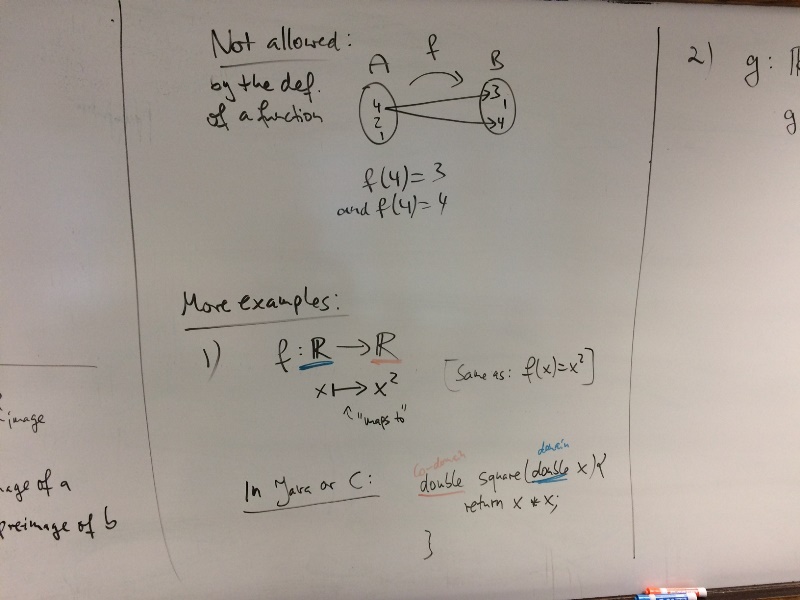 Not allowed:
by the def.
of a function
A f B
4
2
1
3
1
4
f(4)=3
and f(4)=4
More examples:
1) f: ℝ → ℝ
x ↦ x²
"maps to"
[Same as: f(x)=x²]
In Java or C:
codomain domain
double square(double x){
return x * x;
}
2) g:
g
image
of a
preimage of b